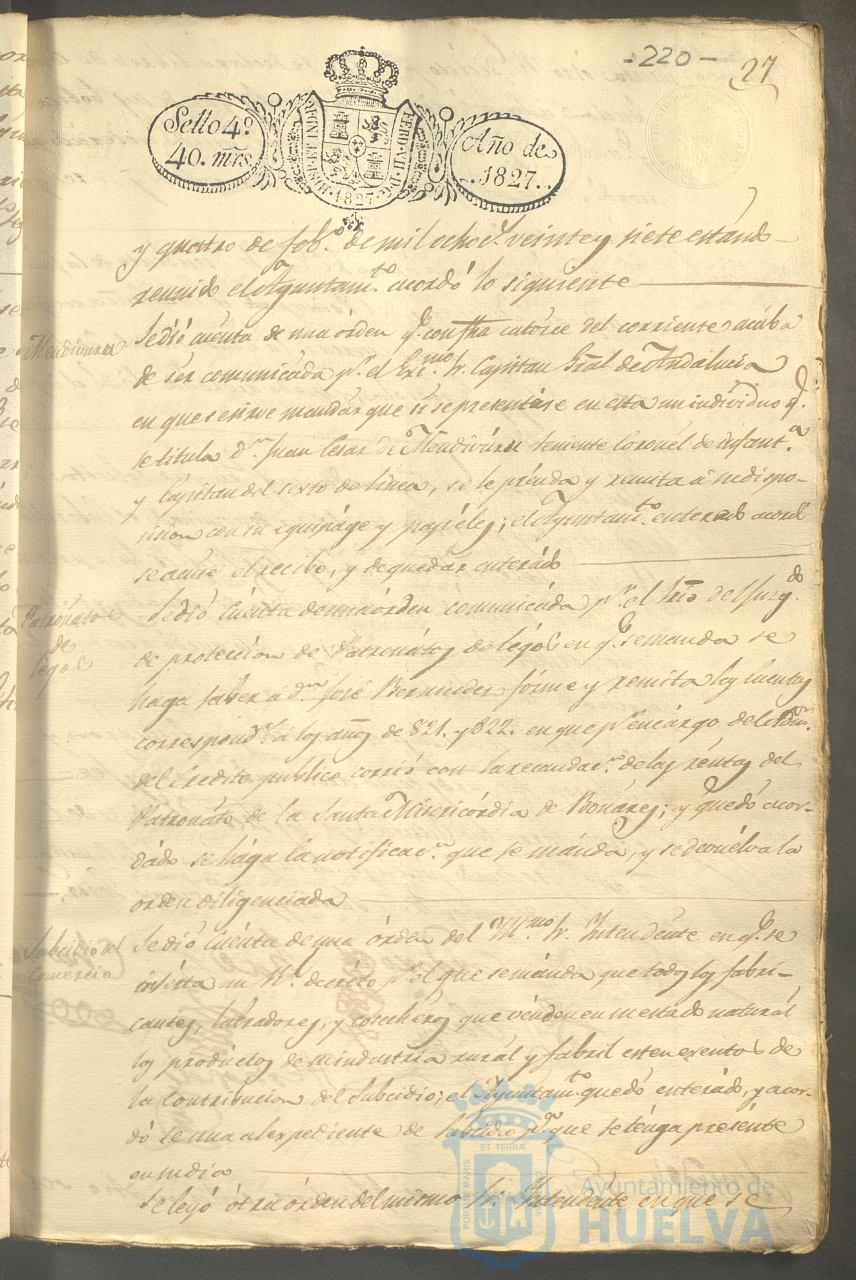 - 220 -
27
Sello 4º
40. mrs.
HISP. ET IND. R.
FERD. VII. D. G.
1827
Año de
1827.
y quatro de feb.º de mil ocho c.s veinte y siete estando
reunido el Ayuntam.to acordó lo siguiente
Mendivuru
Se dió cuenta de una órden q.e con fha catorce del corriente acaba
de ser comunicada p.r el Exc.mo Sr. Capitan Gral de Andalucia
en que se sirve mandar que si se presentáse en esta un individuo q.e
se titula d.n Juan Cesar de Mendivuru teniente Coronél de Infant.a
y Capitan del sexto de linea, se le prenda y remita á su dispo-
sision con su equipáge y papéles; el Ayuntam.to enterado acordó
se acuse el recibo, y de quedar enterado
Patronato
de
legos
Se dió Cuenta de una órden comunicada p.r el Srio del Juzg.do
de protección de Patronatos de légos en q.e se manda se
haga saber á d.n José Bermudez fórme y remita las Cuentas
correspond.s á los años de 821. y 822. en que p.r encárgo del Adm.or
del Credito publico corrió con la recaudac.n de las réntas del
Patronáto de la Santa Misericórdia de Bonáres; y quedó acor-
dádo se hága la notificac.n que se mánda, y se devuélva la
orden diligenciada
Subsidio del
Comercio
Se dió Cuénta de una órden del Yll.mo Sr. Intendénte en q.e se
insérta un R.l decréto p.r el que se mánda que todos los fabri-
cantes, labradores, y cosecheros que vénden en su estado naturál
los prodúctos de su industria rurál y fabril esten exentos de
la Contribucion del Subsidio; el Ayuntam.to quedó enterádo, y acor-
dó se una al expediente de subsidio p.a que se ténga presénte
en su dia
Se leyó ótra órden del mismo Sr. Intendénte en que se
PORTUS MARIS
ET TERRÆ
Ayuntamiento de
HUELVA